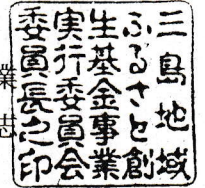 三島地域
ふるさと創
生基金事業
実行委員会
委員長之印
業志